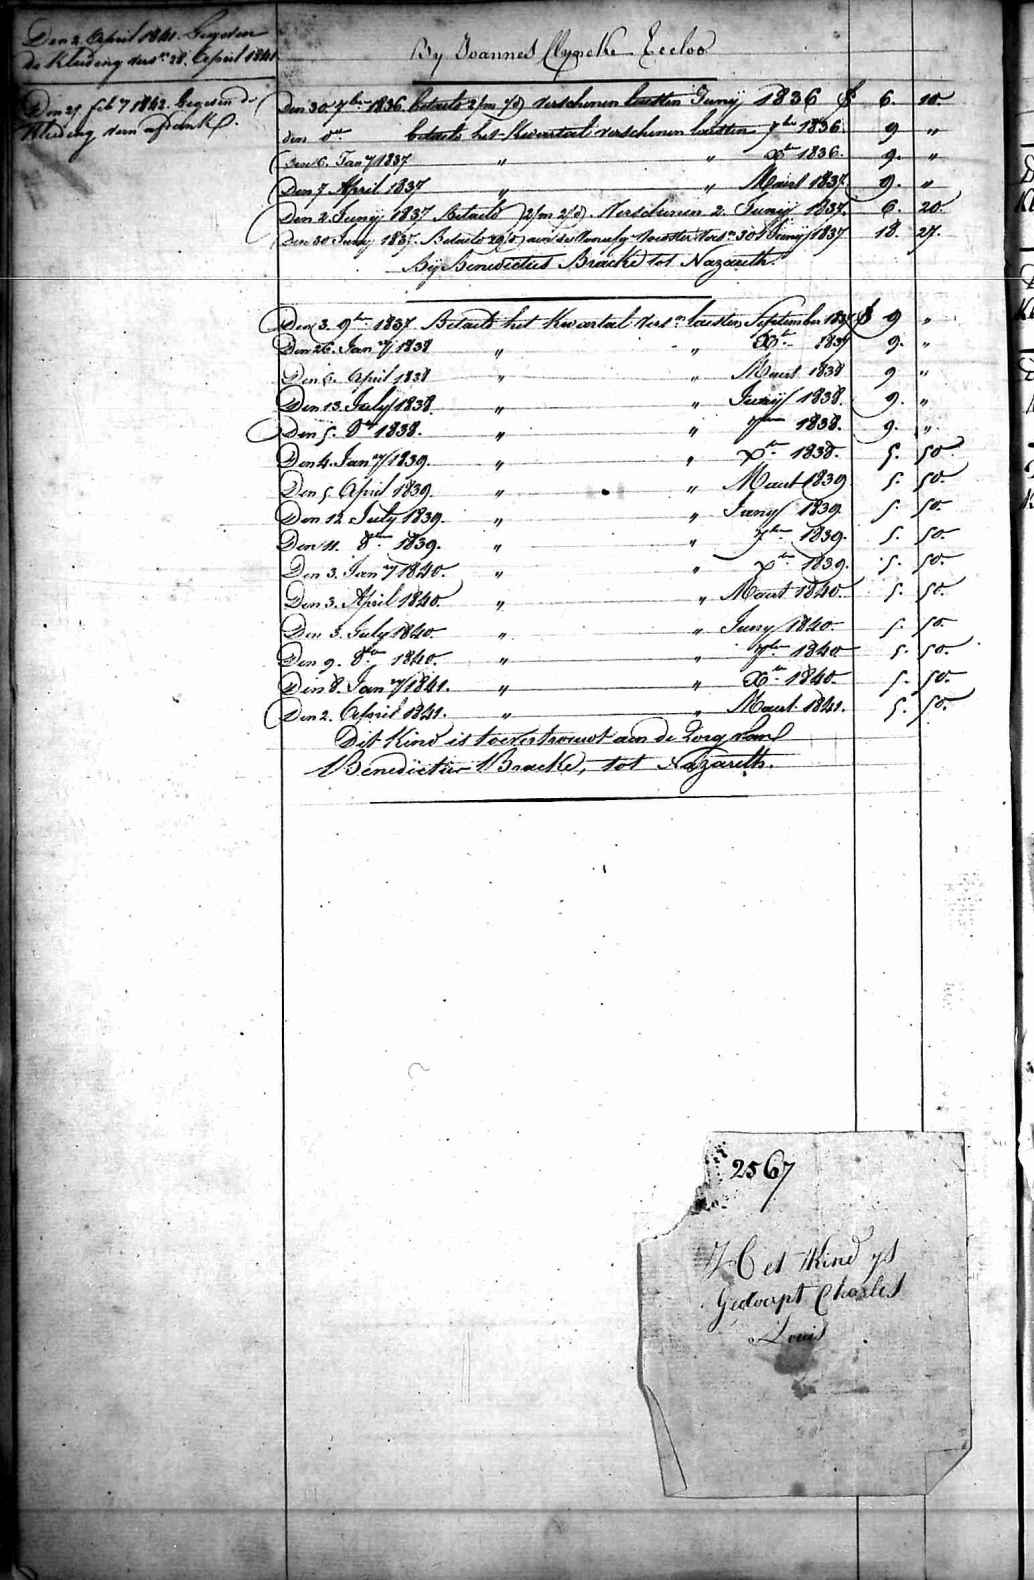 Den 2. April 1841. Gegeven
de Kleeding vers.n 28. April 1841
Den 25 feb 7 1842. Gegeven de
Kleeding van afdank
By Joannes Clyncke Eecloo
Den 30 7bre 1836 betaelt 2/m verschenen laesten Juny 1836 6. 10
den do betaelt het Kwartael verschenen laesten 7bre 1836. 9 "
Den 6. Jany 1837 " " Xbre 1836. 9. "
Den 7. April 1837 " " Maert 1837 9. "
Den 2. Juny 1837 Betaelt 2/m 2/d. Verschenen 2. Juny 1837. 6. 20.
Den 30 Juny 1837. Betaelt 29/d aen den voorsten vers.n 30 Juny 1837 18. 27.
By Benedictus Bracke tot Nazareth.
Den 3. 9bre 1837 Betaelt het Kwartael Vers.n laesten September 1837 9 "
Den 26. Jany 1838 " " Xbre 1837 9. "
Den 6. April 1838 " " Maert 1838 9 "
Den 13. July 1838. " " Juny 1838. 9. "
Den 5. 8bre 1838. " " 7bre 1838. 9. "
Den 4. Jany 1839. " " Xbre 1838. 5. 50.
Den 5. April 1839. " " Maert 1839 5. 50.
Den 12 July 1839. " " Juny 1839 5. 50.
Den 11. 8bre 1839. " " 7bre 1839. 5. 50.
Den 3. Jany 1840. " " Xbre 1839. 5. 50.
Den 3. April 1840. " " Maert 1840. 5. 50.
Den 3. July 1840. " " Juny 1840. 5. 50.
Den 9. 8bre 1840. " " 7bre 1840 5. 50.
Den 8. Jany 1841. " " Xbre 1840 5. 50.
Den 2. April 1841. " " Maert 1841. 5. 50.
Dit Kind is toevertrouwt aen de Zorg van
Benedictus Bracke, tot Nazareth.
2567
Het Kind ys
Gedoopt Charles
Louis